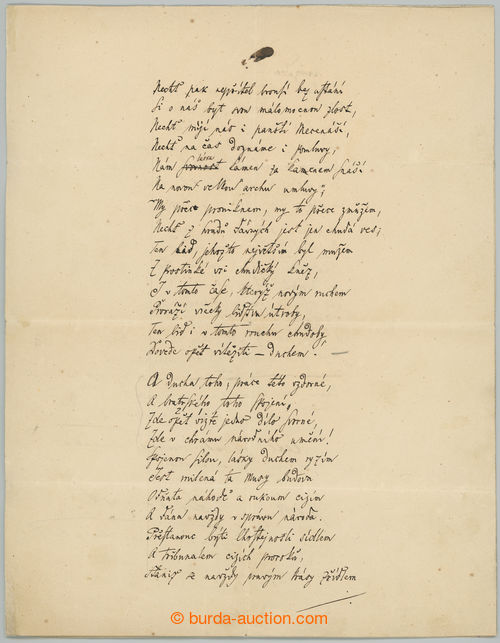 Nechť pak nepřítel brousí bez ustání
Si o náš byt svou málomocnou zlost,
Nechť míjí nás i panští Mecenáši,
Nechť na čas doznáme i pomluvy;
láska
Nám svornost kámen za kamenem snáší
Na novou velkou archu úmluvy;
My přece proniknem, my to přece zmůžem,
Nechť z hradů slavných jest jen chudá ves;
Ten lid, jehožto největším byl mužem
Z prostinké vsi chudičký kněz,
I v tomto čase, kterýž novým ruchem
Proráží všecky lidstva útroby,
Ten lid i v tomto rouchu chudoby
Dovede opět vítěziti – duchem!
A ducha toho, práce této vzdorné,
A bratrského toho spojení,
Zde opět vizte jedno dílo sborné,
Zde v chrámu národního umění!
Spojenou silou, lásky duchem ryzím
Jest milená ta Musy budova
Odňata náhodě a rukoum cizím
A dána navždy v správu národa.
Přestanouc býti lhostejnosti sídlem
A tribunalem cizích proroků,
Staniž se navždy pravým krásy zřídlem
© burda-auction.com